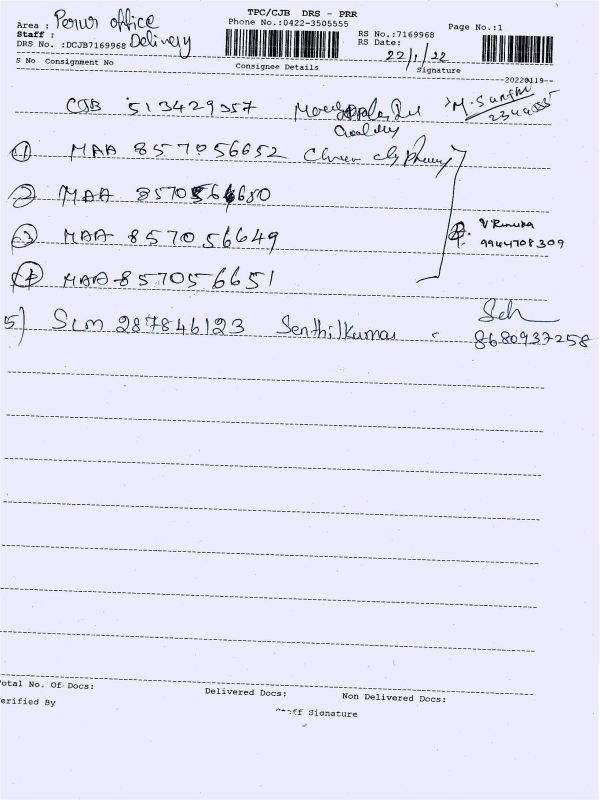 TPC/CJB DRS - PRR
Area : Perur office
Phone No.:0422-3505555
Page No.:1
Staff :
RS No.:7169968
DRS No. :DCJB7169968 Delivery
RS Date:
22/1/22
S No Consignment No Consignee Details Signature
20220119--
CJB 513429357 M.Santhi
① MAA 857056652
② MAA 857056650
V Renuka
③ MAA 857056649 9944708309
④ MAA 857056651
5) SLM 287846123 Senthilkumar
8680937258
otal No. Of Docs: Delivered Docs: Non Delivered Docs:
erified By
Signature